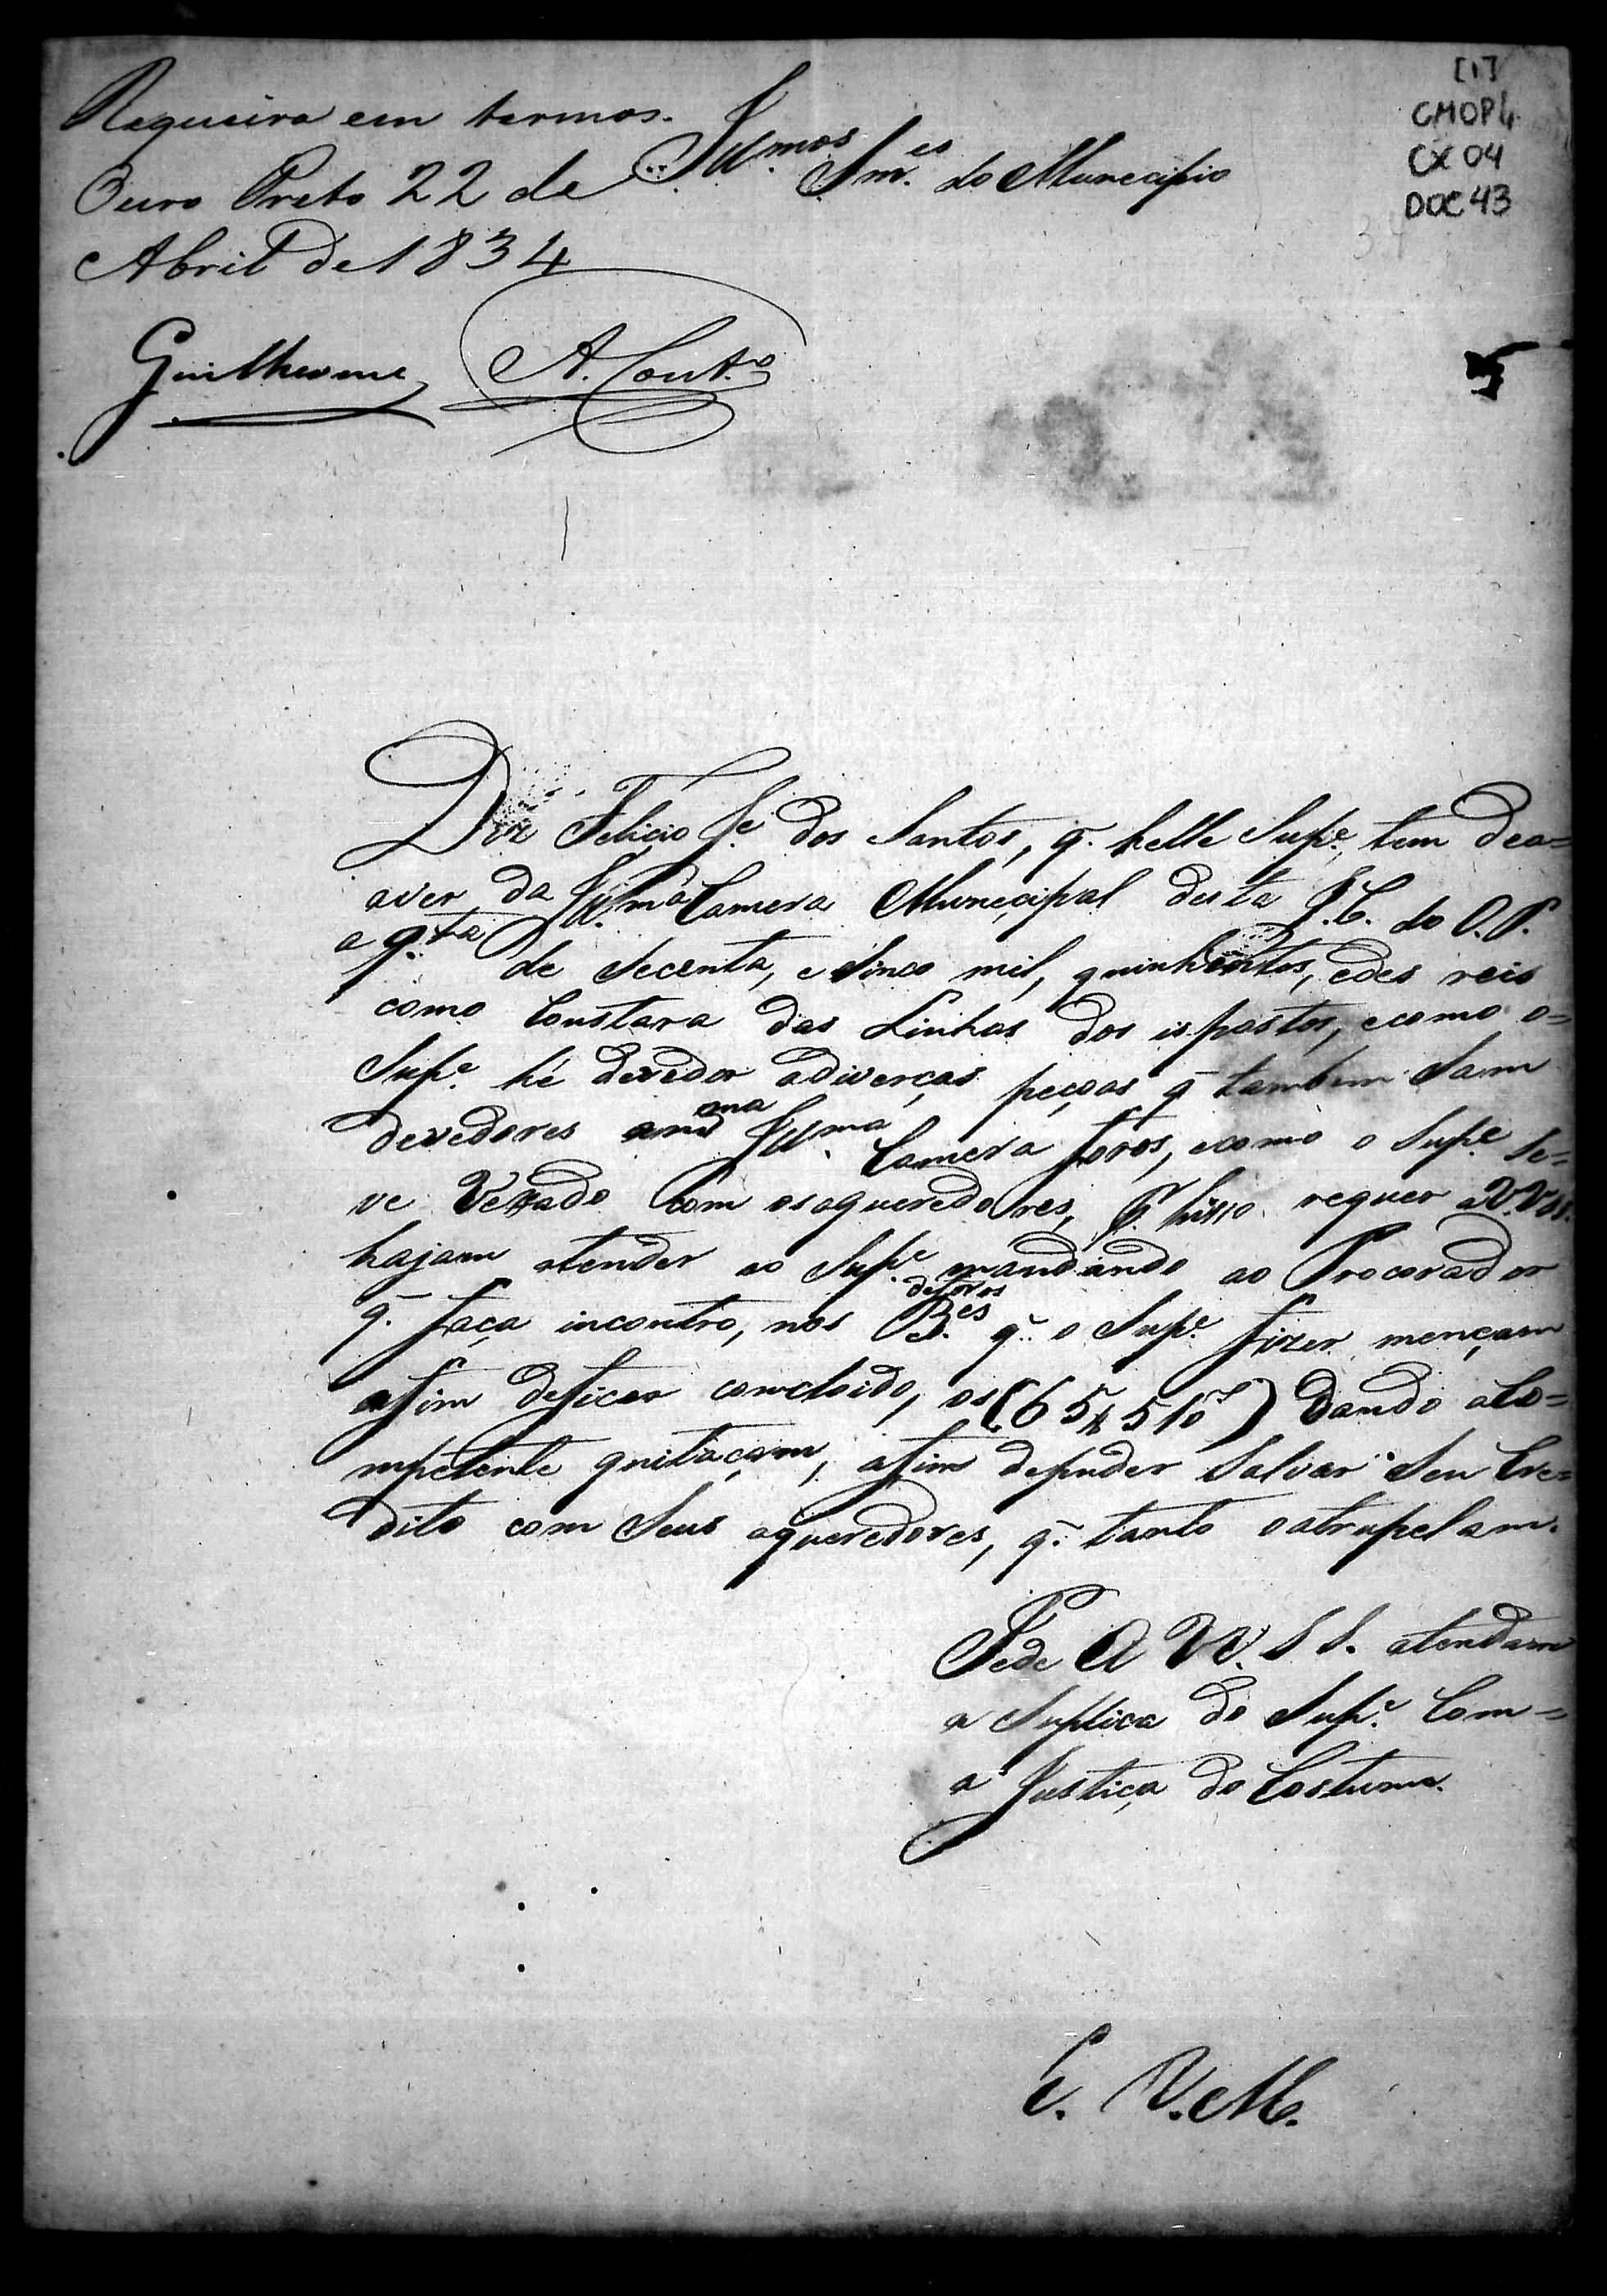 [1]
CMOP
CX 04
DOC 43
Requeira em termos.
Ouro Preto 22 de
Abril de 1834
Guilherme A. Cout.º
Ill.mos Snr.es do Municipio
Diz Felicio J.e dos Santos, q. helle Sup.e tem dea=
aver da Ill.ma Camera Municipal desta I.C. do O.P.
a q.ta de Secenta, e Sinco mil, quinhentos, edes reis
como Constara das Linhas dos ispostos, ecomo o=
Sup.e hé devedor adiverças peçoas q tambem Sam
devedores Ill.ma Camera foros, ecomo o Sup.e Se=
ve Vexado Com osaqueredores, P. hisso requer a V.V.
hajam atender ao Sup.e mandando ao Procorador
q. faça incontro, nos B.es deforos q. o Sup.e fizer mençam
afim deficar concloido, os (65$510) Dando aCo=
mpetente quitaçam, afim depuder Salvar Seu Cre=
dito com Seus aqueredores, q. tanto oatrupelam.
Pede A VV. S S. atendam
a Suplica do Sup.e Com=
a Justiça do Costume.
E. V. M.